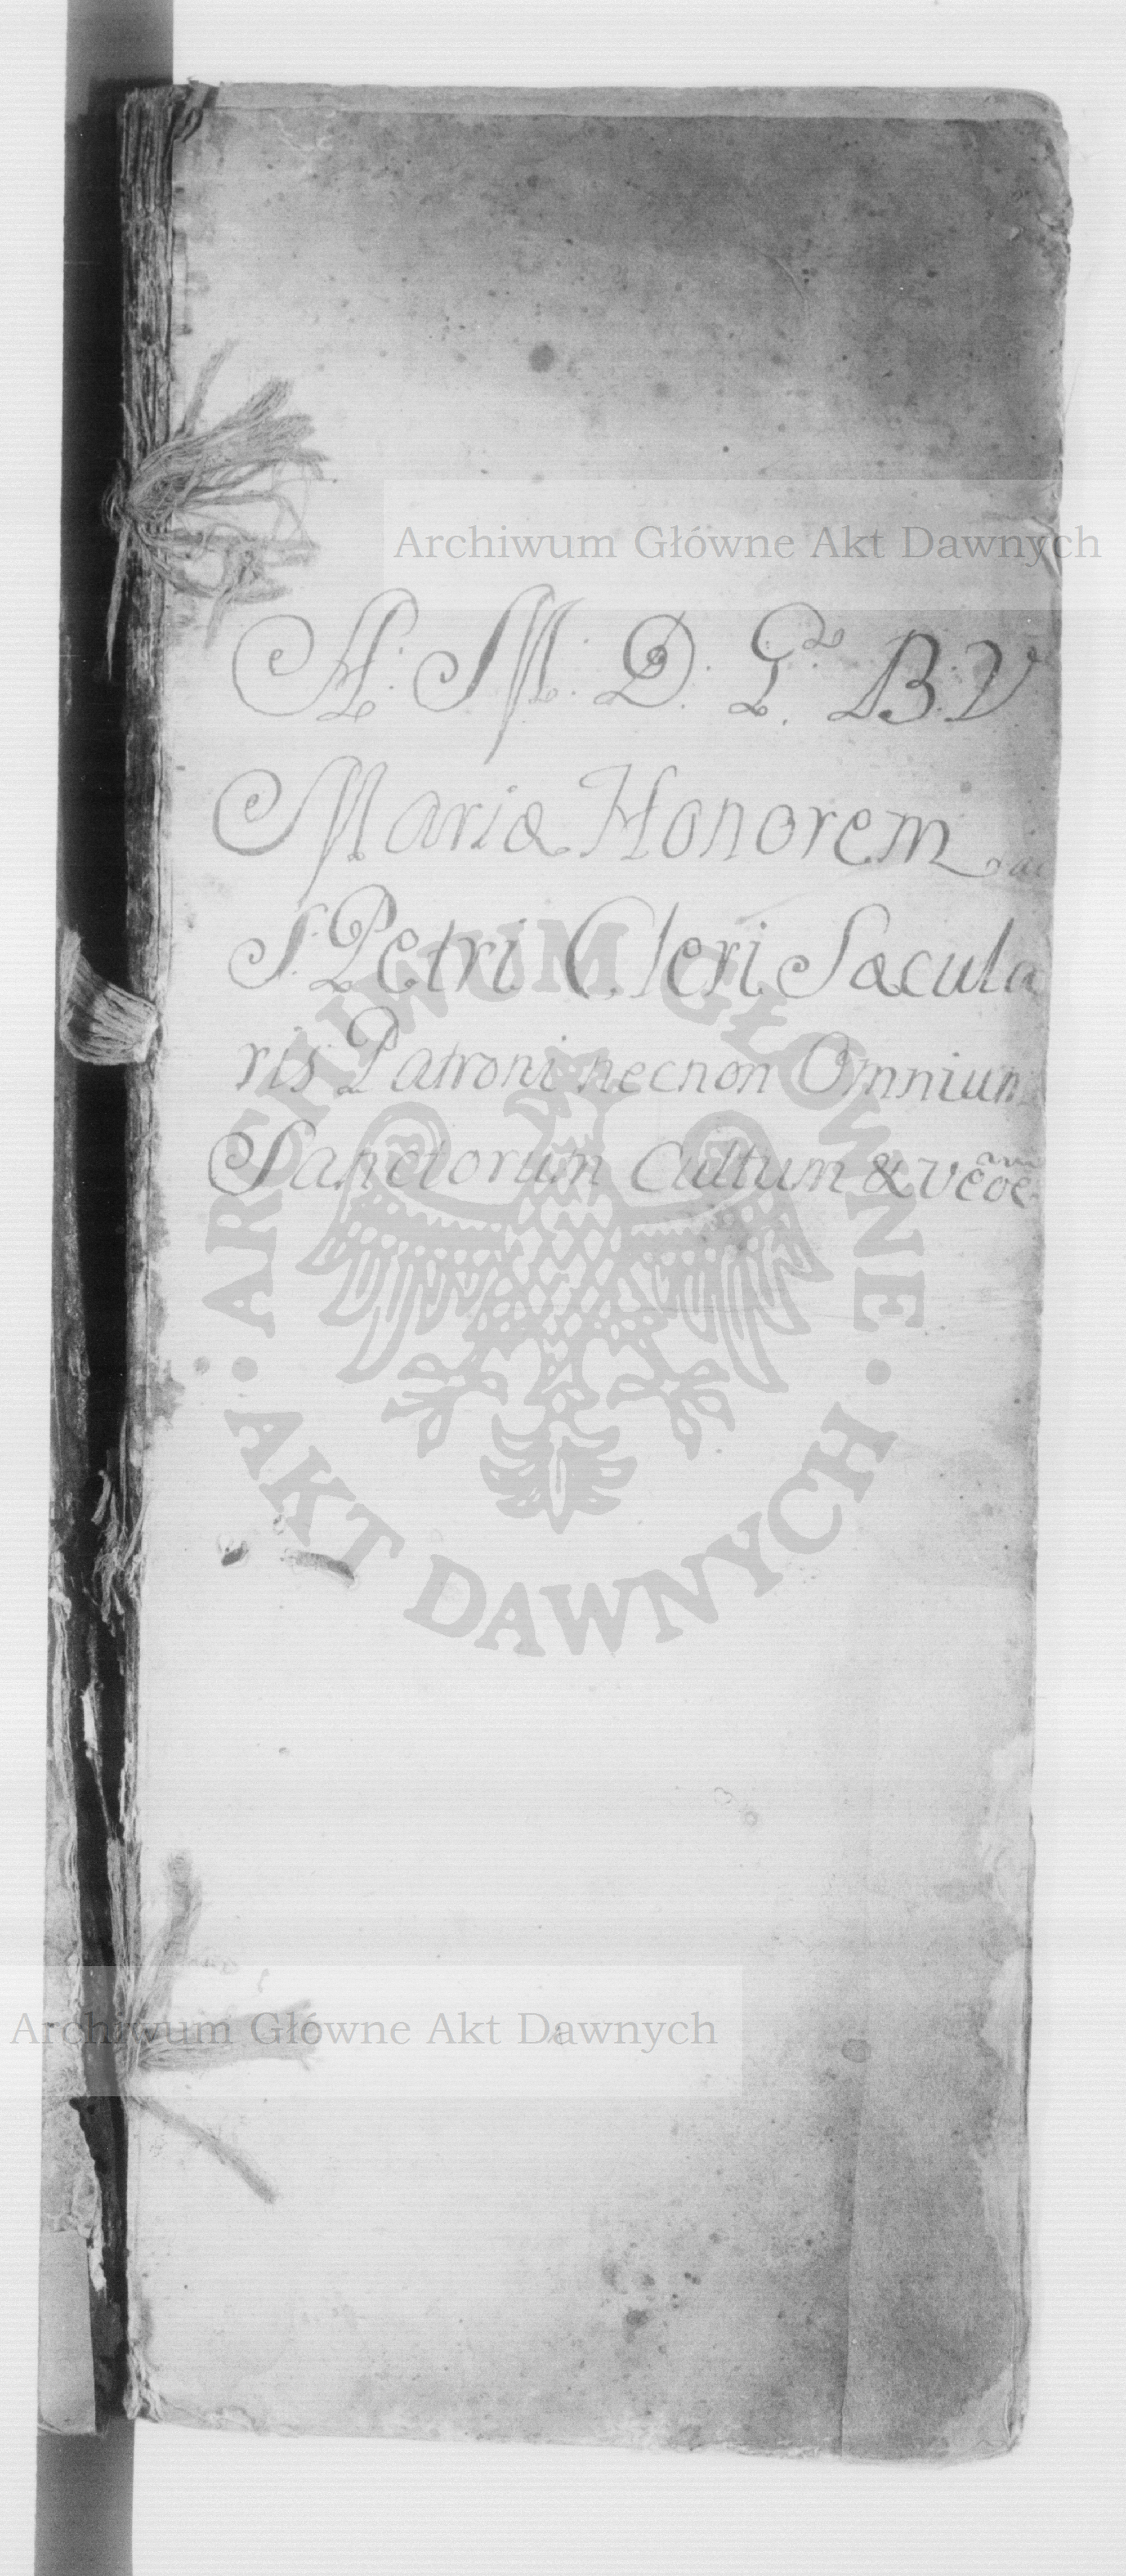 Archiwum Główne Akt Dawnych
A. M. D. G. B. V
Mariæ Honorem ac
S. Petri Cleri Sæcula
ris Patroni necnon Omnium
Sanctorum Cultum &
ARCHIWUM GŁÓWNE
AKT DAWNYCH
Archiwum Główne Akt Dawnych